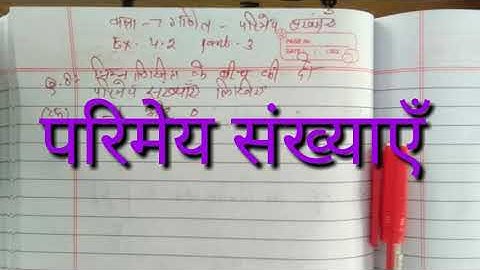 कक्षा - 7 गणित - परिमेय संख्याएँ
Ex. 4.2 part - 3
निम्नलिखित के बीच की दो
परिमेय संख्याएँ लिखिए
परिमेय संख्याएँ